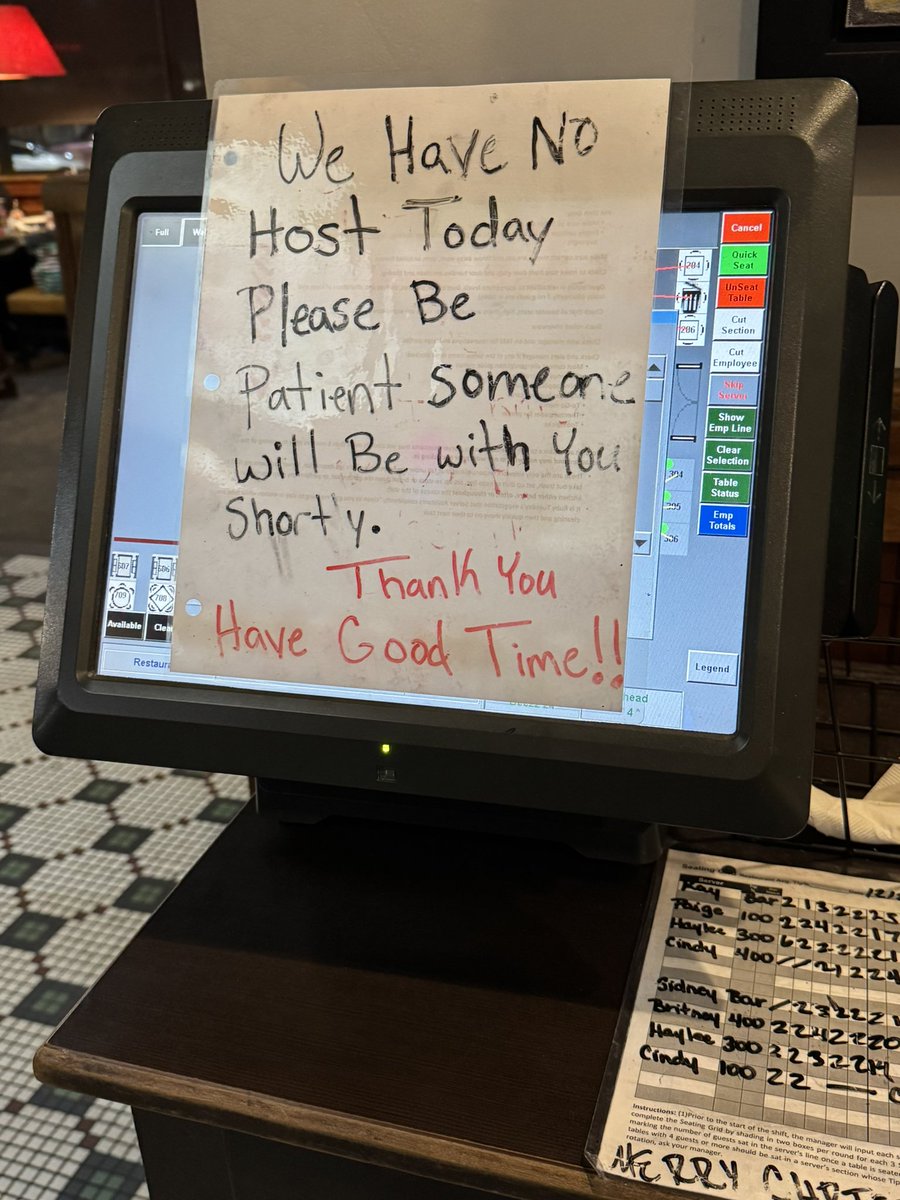 We Have No
Host Today
Please Be
Patient Someone
will Be with You
Shorty.
Thank You
Have Good Time!!
Full
Cancel
Quick
Seat
UnSeat
Table
Cut
Section
Cut
Employee
Skip
Server
Show
Emp Line
Clear
Selection
Table
Status
Emp
Totals
Legend
204
206
304
305
306
507
506
709
708
Available
Restau
head
4^
Seating
Server
Kay Bar 2 1 3 2 2 2 5
Paige 100 2 2 4 2 2 1 7
Haylee 300 6 2 2 2 2 2 1
Cindy 400 / / 2 1 2 2 4
Sidney Bar / 2 3 2 2 2 1
Britney 400 2 2 4 2 2 2 0
Haylee 300 2 2 3 2 2 1 4
Cindy 100 2 2 —
Instructions: (1)Prior to the start of the shift, the manager will input each s
complete the Seating Grid by shading in two boxes per round for each 3
marking the number of guests sat in the server's line once a table is seate
tables with 4 guests or more should be sat in a server's section whose Tip
rotation, ask your manager.
MERRY